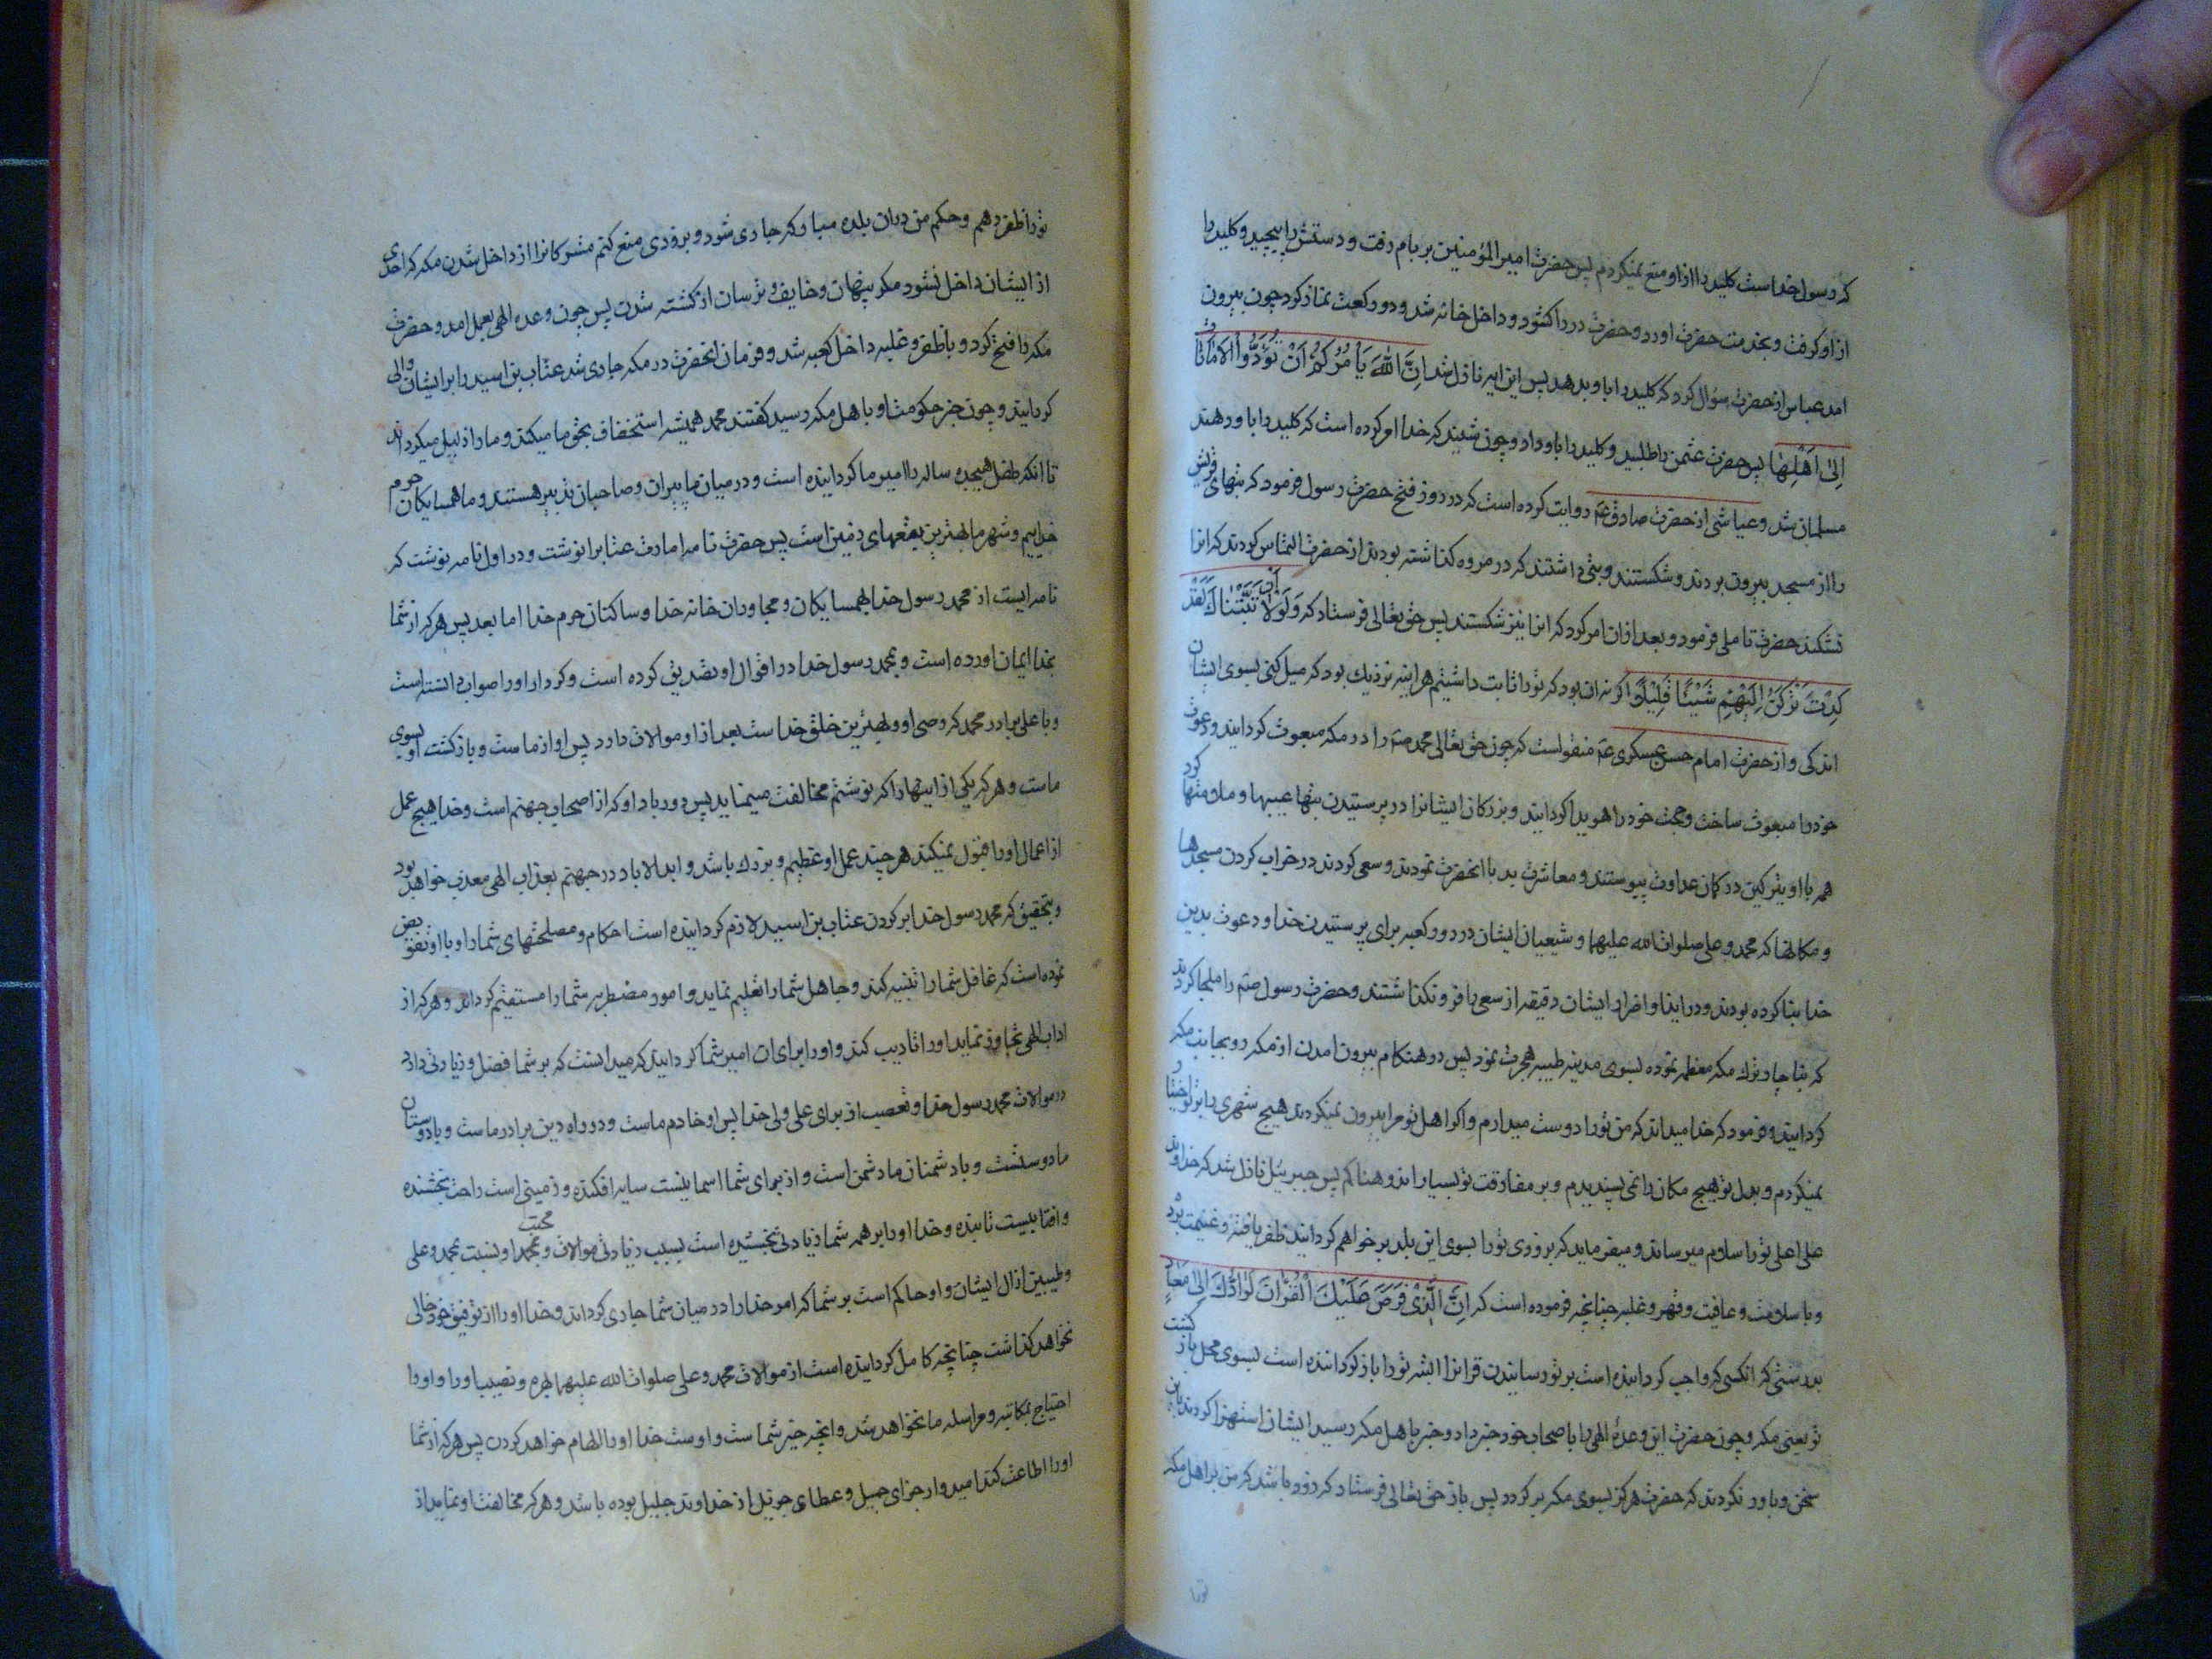 که رسول خداست کلید را از او منع نمیکردم پس حضرت امیر المؤمنین بر بام رفت و دستش را پیچید و کلید را
از او کرفت و بخدمت حضرت اورد و حضرت در را کشود و داخل خانه شد و دو رکعت نماز کرد چون بیرون
امد عباس از حضرت سؤال کرد که کلید را باو بدهد پس این ایه نازل شد اِنَّ اللّٰهَ یَاْمُرُکُمْ اَنْ تُؤَدُّوا الْاَمٰانٰاتِ
اِلیٰ اَهْلِهٰا پس حضرت عثمن را طلبید و کلید را باو داد و چون شنید که خدا امر کرده است که کلید را باو دهند
مسلمان شد و عیاشی از حضرت صادق عم روایت کرده است که در روز فتح حضرت رسول فرمود که بتهای قریش
را از مسجد بیرون بردند و شکستند و بتی داشتند که در مروه کذاشته بودند از حضرت التماس کردند که انرا
نشکند حضرت تاملی فرمود و بعد از ان امر کرد که انرا نیز شکستند پس حق تعالی فرستاد که وَلَوْلٰا اَنْ ثَبَّتْنٰاكَ لَقَدْ
کِدْتَ تَرْکَنُ اِلَیْهِمْ شَیْئًا قَلِیْلًا اکر نه ان بود که تو را ثابت داشتیم هراینه نزدیك بود که میل کنی بسوی ایشان
اندکی و از حضرت امام حسن عسکری عم منقولست که چون حق تعالی محمد صم را در مکه مبعوث کردانید و دعوت
خود را مبعوث ساخت و حجت خود را هویدا کردانید و بزرکان ایشانرا در پرستیدن بتها عیبها و ملامتها کرد
همه با او بتر کین در کمان عداوت پیوستند و معاشرت بد با انحضرت نمودند و سعی کردند در خراب کردن مسجدها
و مکانها که محمد و علی صلوات الله علیهما و شیعیان ایشان در دور کعبه برای پرستیدن خدا و دعوت بدین
خدا بنا کرده بودند و در ایذا و اضرار ایشان دقیقه از سعی را فرو نکذاشتند و حضرت رسول صم را ملجا کردند
که بنا چار ترك مکه معظمه نموده بسوی مدینه طیبه هجرت نمود پس در هنکام بیرون امدن از مکه رو بجانب مکه
کردانید و فرمود که خدا میداند که من تو را دوست میدارم و اکر اهل تو مرا بیرون نمیکردند هیچ شهری را بر تو اختیار
نمیکردم و بدل تو هیچ مکان را نمی پسندیدم و بر مفارقت تو بسیار اندوهناکم پس جبرئیل نازل شد که خداوند
علی اعلی تو را سلام میرساند و میفرماید که بزودی تو را بسوی این بلد بر خواهم کردانید ظفر یافته و غنیمت برده
و با سلامت و عافیت و قهر و غلبه چنانچه فرموده است که اِنَّ الَّذِیْ فَرَضَ عَلَیْكَ الْقُرْاٰنَ لَرٰادُّكَ اِلیٰ مَعٰادٍ
بدرستی که انکسی که واجب کردانیده است بر تو رسانیدن قرانرا البته تو را باز کرداننده است بسوی محل باز کشت
تو یعنی مکه و چون حضرت این وعدهٔ الهی را باصحاب خود خبر داد و خبر باهل مکه رسید ایشان استهزا کردند باین
سخن و باور نکردند که حضرت هرکز بسوی مکه بر کردد پس باز حق تعالی فرستاد که زود باشد که من بر اهل مکه
تو را
تو را ظفر دهم و حکم من در ان بلده مبارکه جاری شود و بزودی منع کنم مشرکانرا از داخل شدن مکه که احدی
از ایشان داخل نشود مکر پنهان و خایف و ترسان از کشته شدن پس چون وعده الهی بعمل امد و حضرت
مکه را فتح کرد و با ظفر و غلبه داخل کعبه شد و فرمان انحضرت در مکه جاری شد عتاب بن اسید را بر ایشان والی
کردانید و چون خبر حکومت او باهل مکه رسید کفتند محمد همیشه استخفاف بحق ما میکند و ما را ذلیل میکرداند
تا انکه طفل هیجده ساله را امیر ما کردانیده است و در میان ما پیران و صاحبان تدبیر هستند و ما همسایکان حرم
خداییم و شهر ما بهترین بقعهای زمین است پس حضرت نامه امارت عتاب را نوشت و در اول نامه نوشت که
نامه ایست از محمد رسول خدا بهمسایکان و مجاوران خانه خدا و ساکنان حرم خدا اما بعد پس هر که از شما
بخدا ایمان اورده است و بمحمد رسول خدا در اقوال او تصدیق کرده است و کردار او را صواب دانسته است
و با علی برادر محمد که وصی او و بهترین خلق خداست بعد از او موالات دارد پس او از ماست و بازکشت او بسوی
ماست و هر که یکی از اینها را که نوشتم مخالفت مینماید پس دور باد او که از اصحاب جهنم است و خدا هیچ عمل
از اعمال او را قبول نمیکند هر چند عمل او عظیم و بزرك باشد و ابد الاباد در جهنم بعذاب الهی معذب خواهد بود
و بتحقیق که محمد رسول خدا بر کردن عتاب بن اسید لازم کردانیده است احکام و مصلحتهای شما را و باو تفویض
نموده است که غافل شما را تنبیه کند و جاهل شما را تعلیم نماید و امور مضطربه شما را مستقیم کرداند و هر که از
اداب الهی تجاوز نماید او را تادیب کند و او را برای ان امیر شما کردانید که میدانست که بر شما فضل و زیادتی دارد
در موالات محمد رسول خدا و تعصب از برای علی ولی خدا پس او خادم ماست و در راه دین برادر ماست و با دوستان
ما دوستست و با دشمنان ما دشمن است و از برای شما اسمانیست سایه افکنده و زمینی است راحت بخشنده
و افتابیست تابنده و خدا او را بر همه شما زیادتی بخشیده است بسبب زیادتی موالات و محبت او نسبت بمحمد و علی
و طیبین از ال ایشان و او حاکم است بر شما که امر خدا را در میان شما جاری کرداند و خدا او را از توفیق خود خالی
نخواهد کذاشت چنانچه کامل کردانیده است از موالات محمد و علی صلوات الله علیهما بهره و نصیب او را و او را
احتیاج بمکاتبه و مراسله ما نخواهد شد و انچه خیر شماست و اوست خدا او را الهام خواهد کردن پس هر که از شما
او را اطاعت کند امیدوار جزای جمیل و عطای جزیل از خداوند جلیل بوده باشد و هر که مخالفت او نماید از